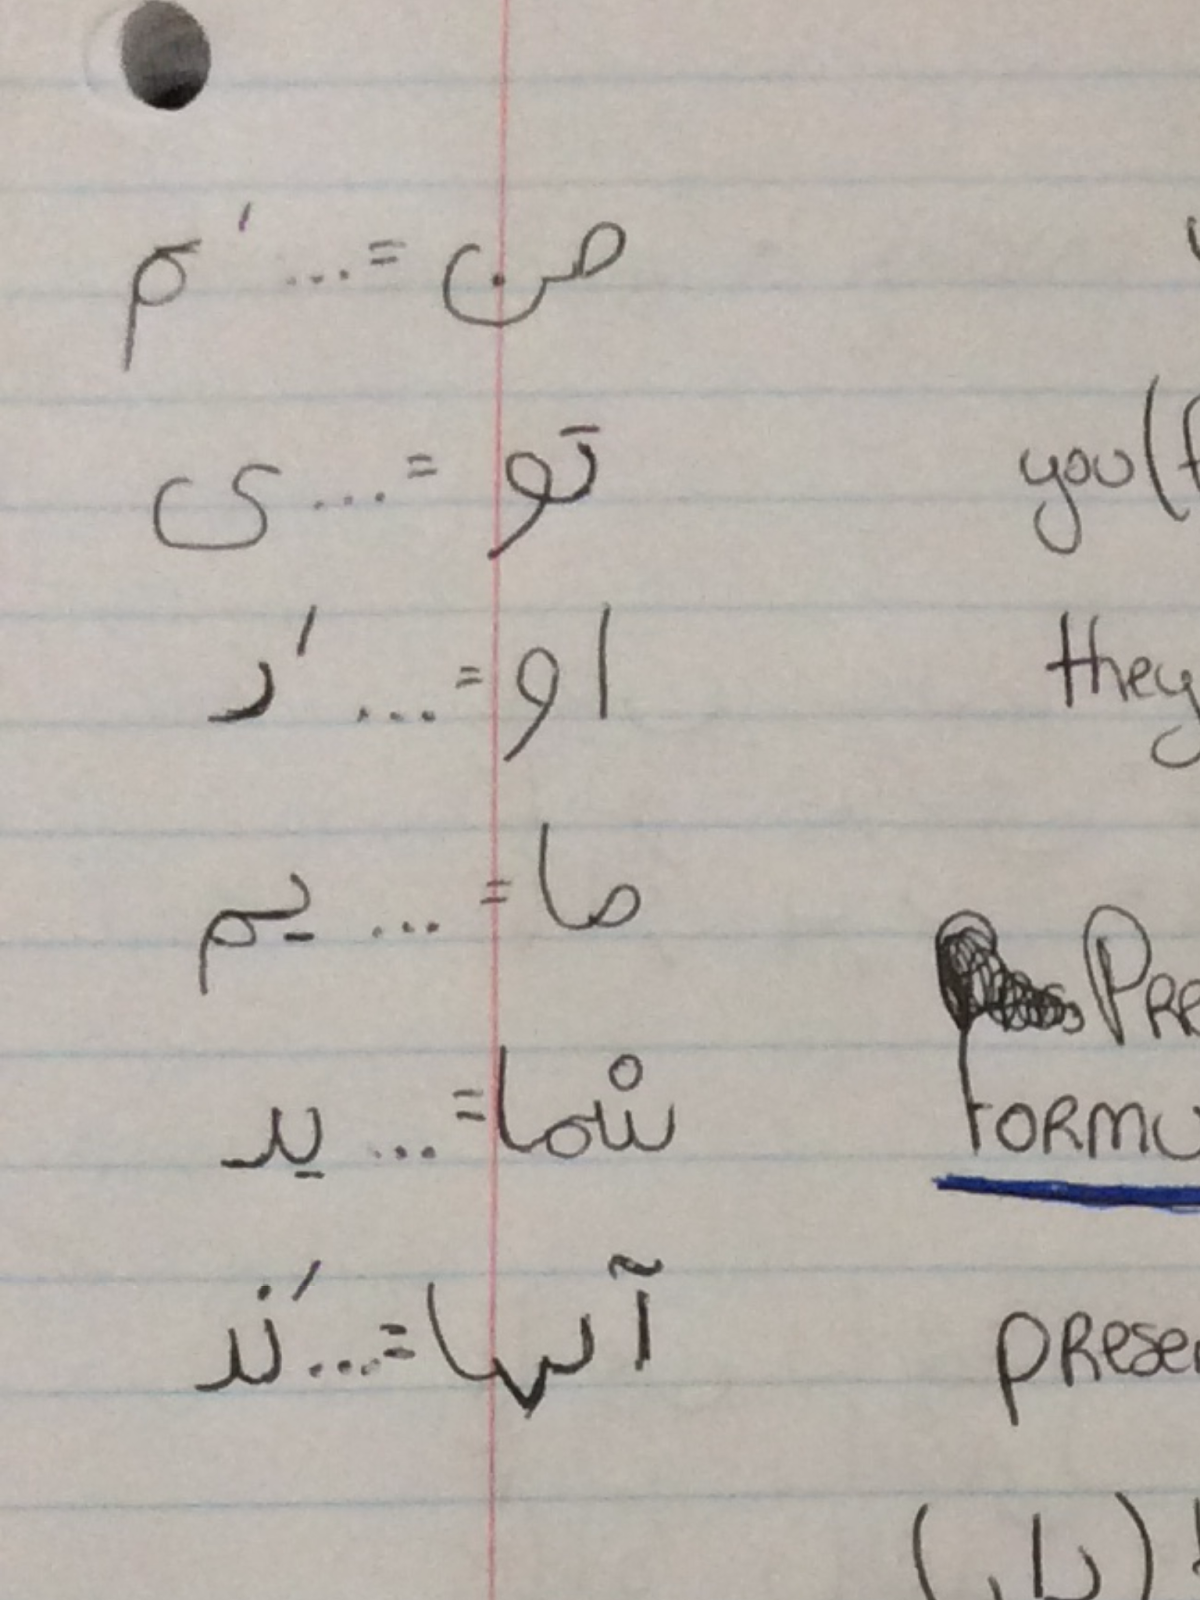 من = ... َم
تو = ... ی
you (
او = ... َد
they
ما = ... یم
PRE
شما = ... ید
FORMU
آنها = ... َند
presen